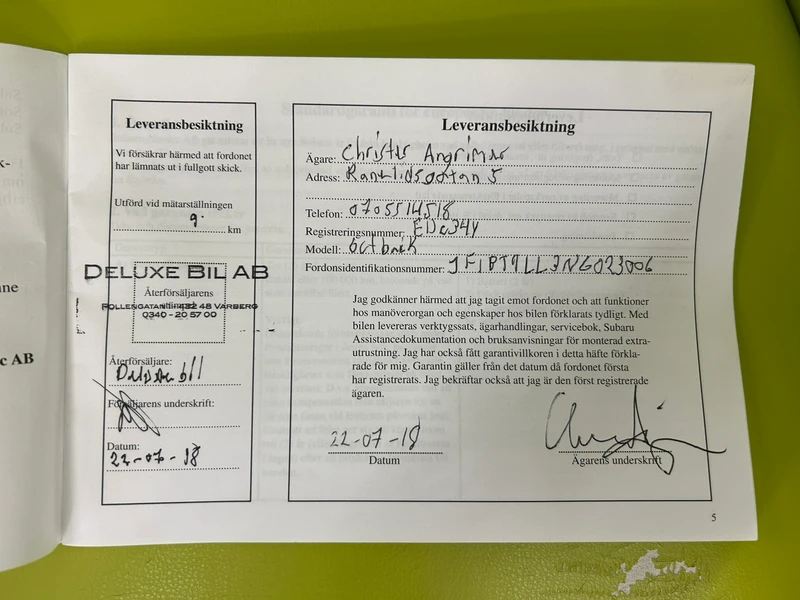 Leveransbesiktning
Vi försäkrar härmed att fordonet
har lämnats ut i fullgott skick.
Utförd vid mätarställningen
9
km
DELUXE BIL AB
Återförsäljarens
432 48 VARBERG
0340 - 20 57 00
Återförsäljare:
Försäljarens underskrift:
Datum:
22-07-18
Leveransbesiktning
Ägare: Christer
Adress: 5
Telefon: 0705514518
Registreringsnummer:
Modell:
Fordonsidentifikationsnummer:
Jag godkänner härmed att jag tagit emot fordonet och att funktioner
hos manöverorgan och egenskaper hos bilen förklarats tydligt. Med
bilen levereras verktygssats, ägarhandlingar, servicebok, Subaru
Assistancedokumentation och bruksanvisningar för monterad extra-
utrustning. Jag har också fått garantivillkoren i detta häfte förkla-
rade för mig. Garantin gäller från det datum då fordonet första
har registrerats. Jag bekräftar också att jag är den först registrerade
ägaren.
22-07-18
Datum
Ägarens underskrift
5